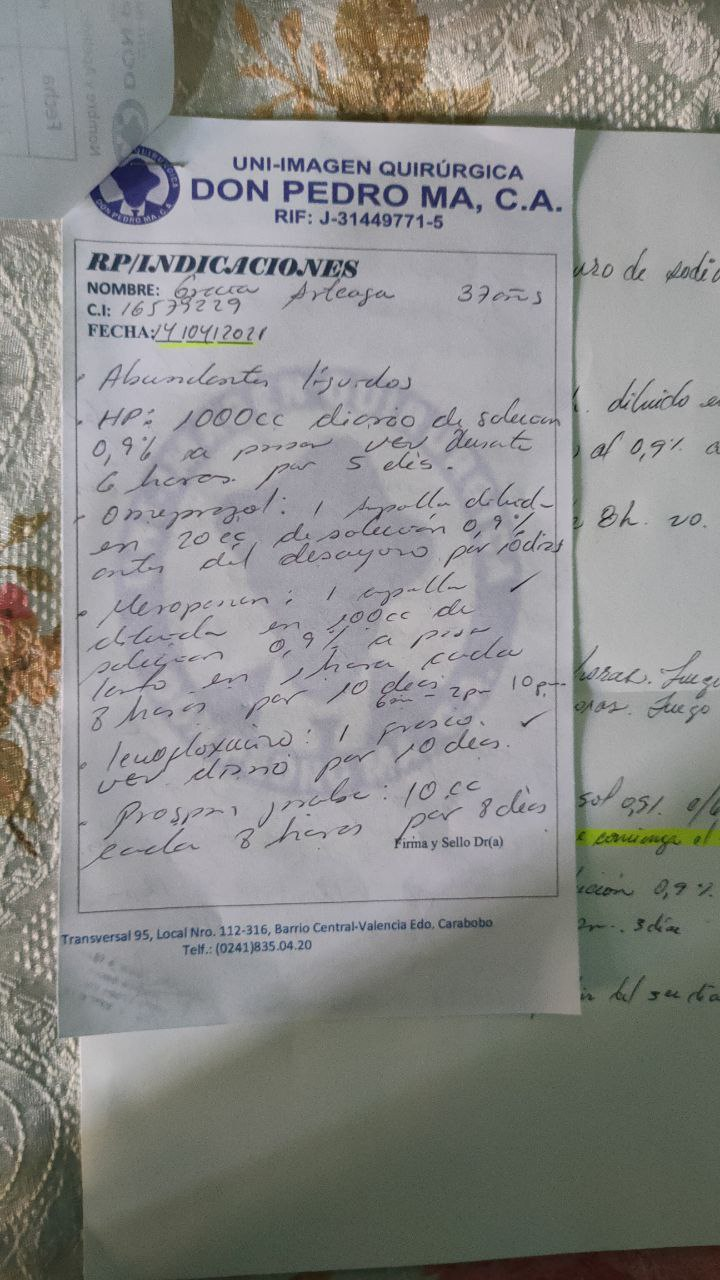 Fecha
Nombre y
DON P
UNI-IMAGEN QUIRÚRGICA
DON PEDRO MA, C.A.
RIF: J-31449771-5
RP/INDICACIONES
NOMBRE: Arteaga 37 años
C.I: 16579229
FECHA: 14/04/2021
• Abundantes líquidos
• HP: 1000cc diario de solución
0,9% a pasar VEV durante
6 horas por 5 días.
• Omeprazol: 1 ampolla diluida
en 20cc de solución 0,9%
antes del desayuno por 10 días
• Meropenem: 1 ampolla ✓
diluida en 100cc de
solución 0,9% a pasar
lento en 1 hora cada
8 horas por 10 días
6am - 2pm 10pm
• : 1 frasco. ✓
VEV diario por 10 días.
• jarabe: 10 cc
cada 8 horas por 8 días
Firma y Sello Dr(a)
Transversal 95, Local Nro. 112-316, Barrio Central-Valencia Edo. Carabobo
Telf.: (0241)835.04.20
uro de sodio
diluido en
al 0,9% a
8h. vo.
horas. Luego
oras. Luego
sol 0,9%
comienza el
ución 0,9%
3 día